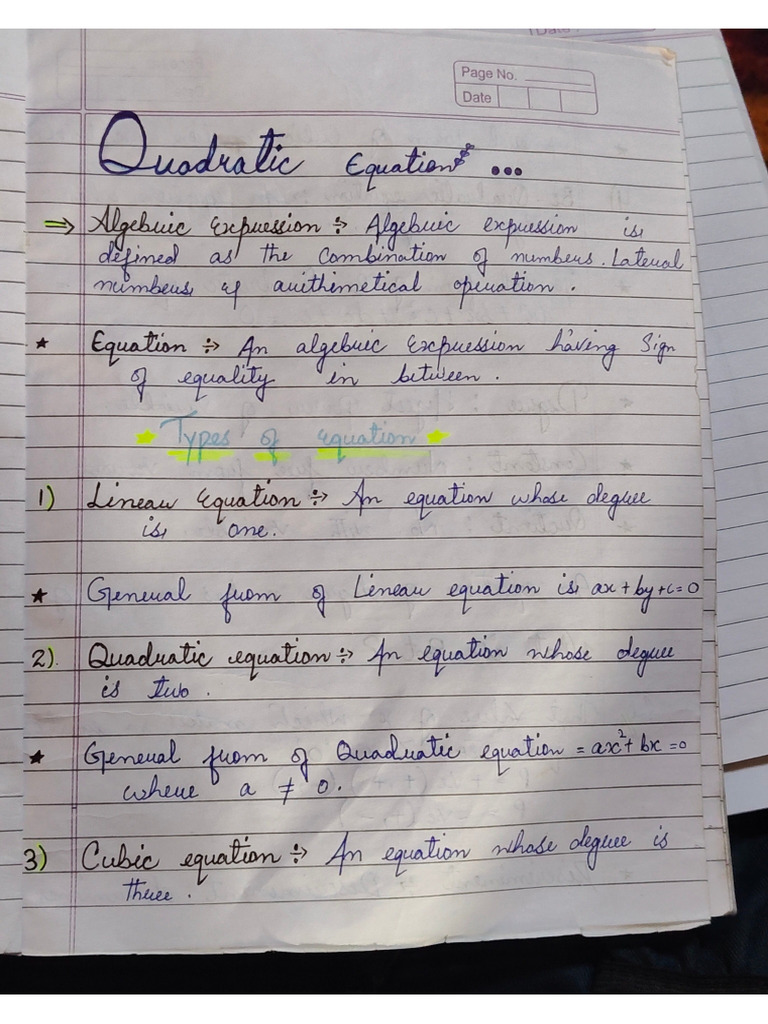 Page No.
Date
Quadratic Equations ...
⇒ Algebric Expression ÷ Algebric expression is
defined as the Combination of numbers. Lateral
numbers & arithimetical operation.
★ Equation ÷ An algebric Expression having Sign
of equality in between.
★ Types of equation ★
1) Linear Equation ÷ An equation whose degree
is one.
★ General from of Linear equation is ax + by + c = 0
2). Quadratic equation ÷ An equation whose degree
is two.
★ General from of Quadratic equation = ax² + bx = 0
where a ≠ 0.
3) Cubic equation ÷ An equation whose degree is
three.